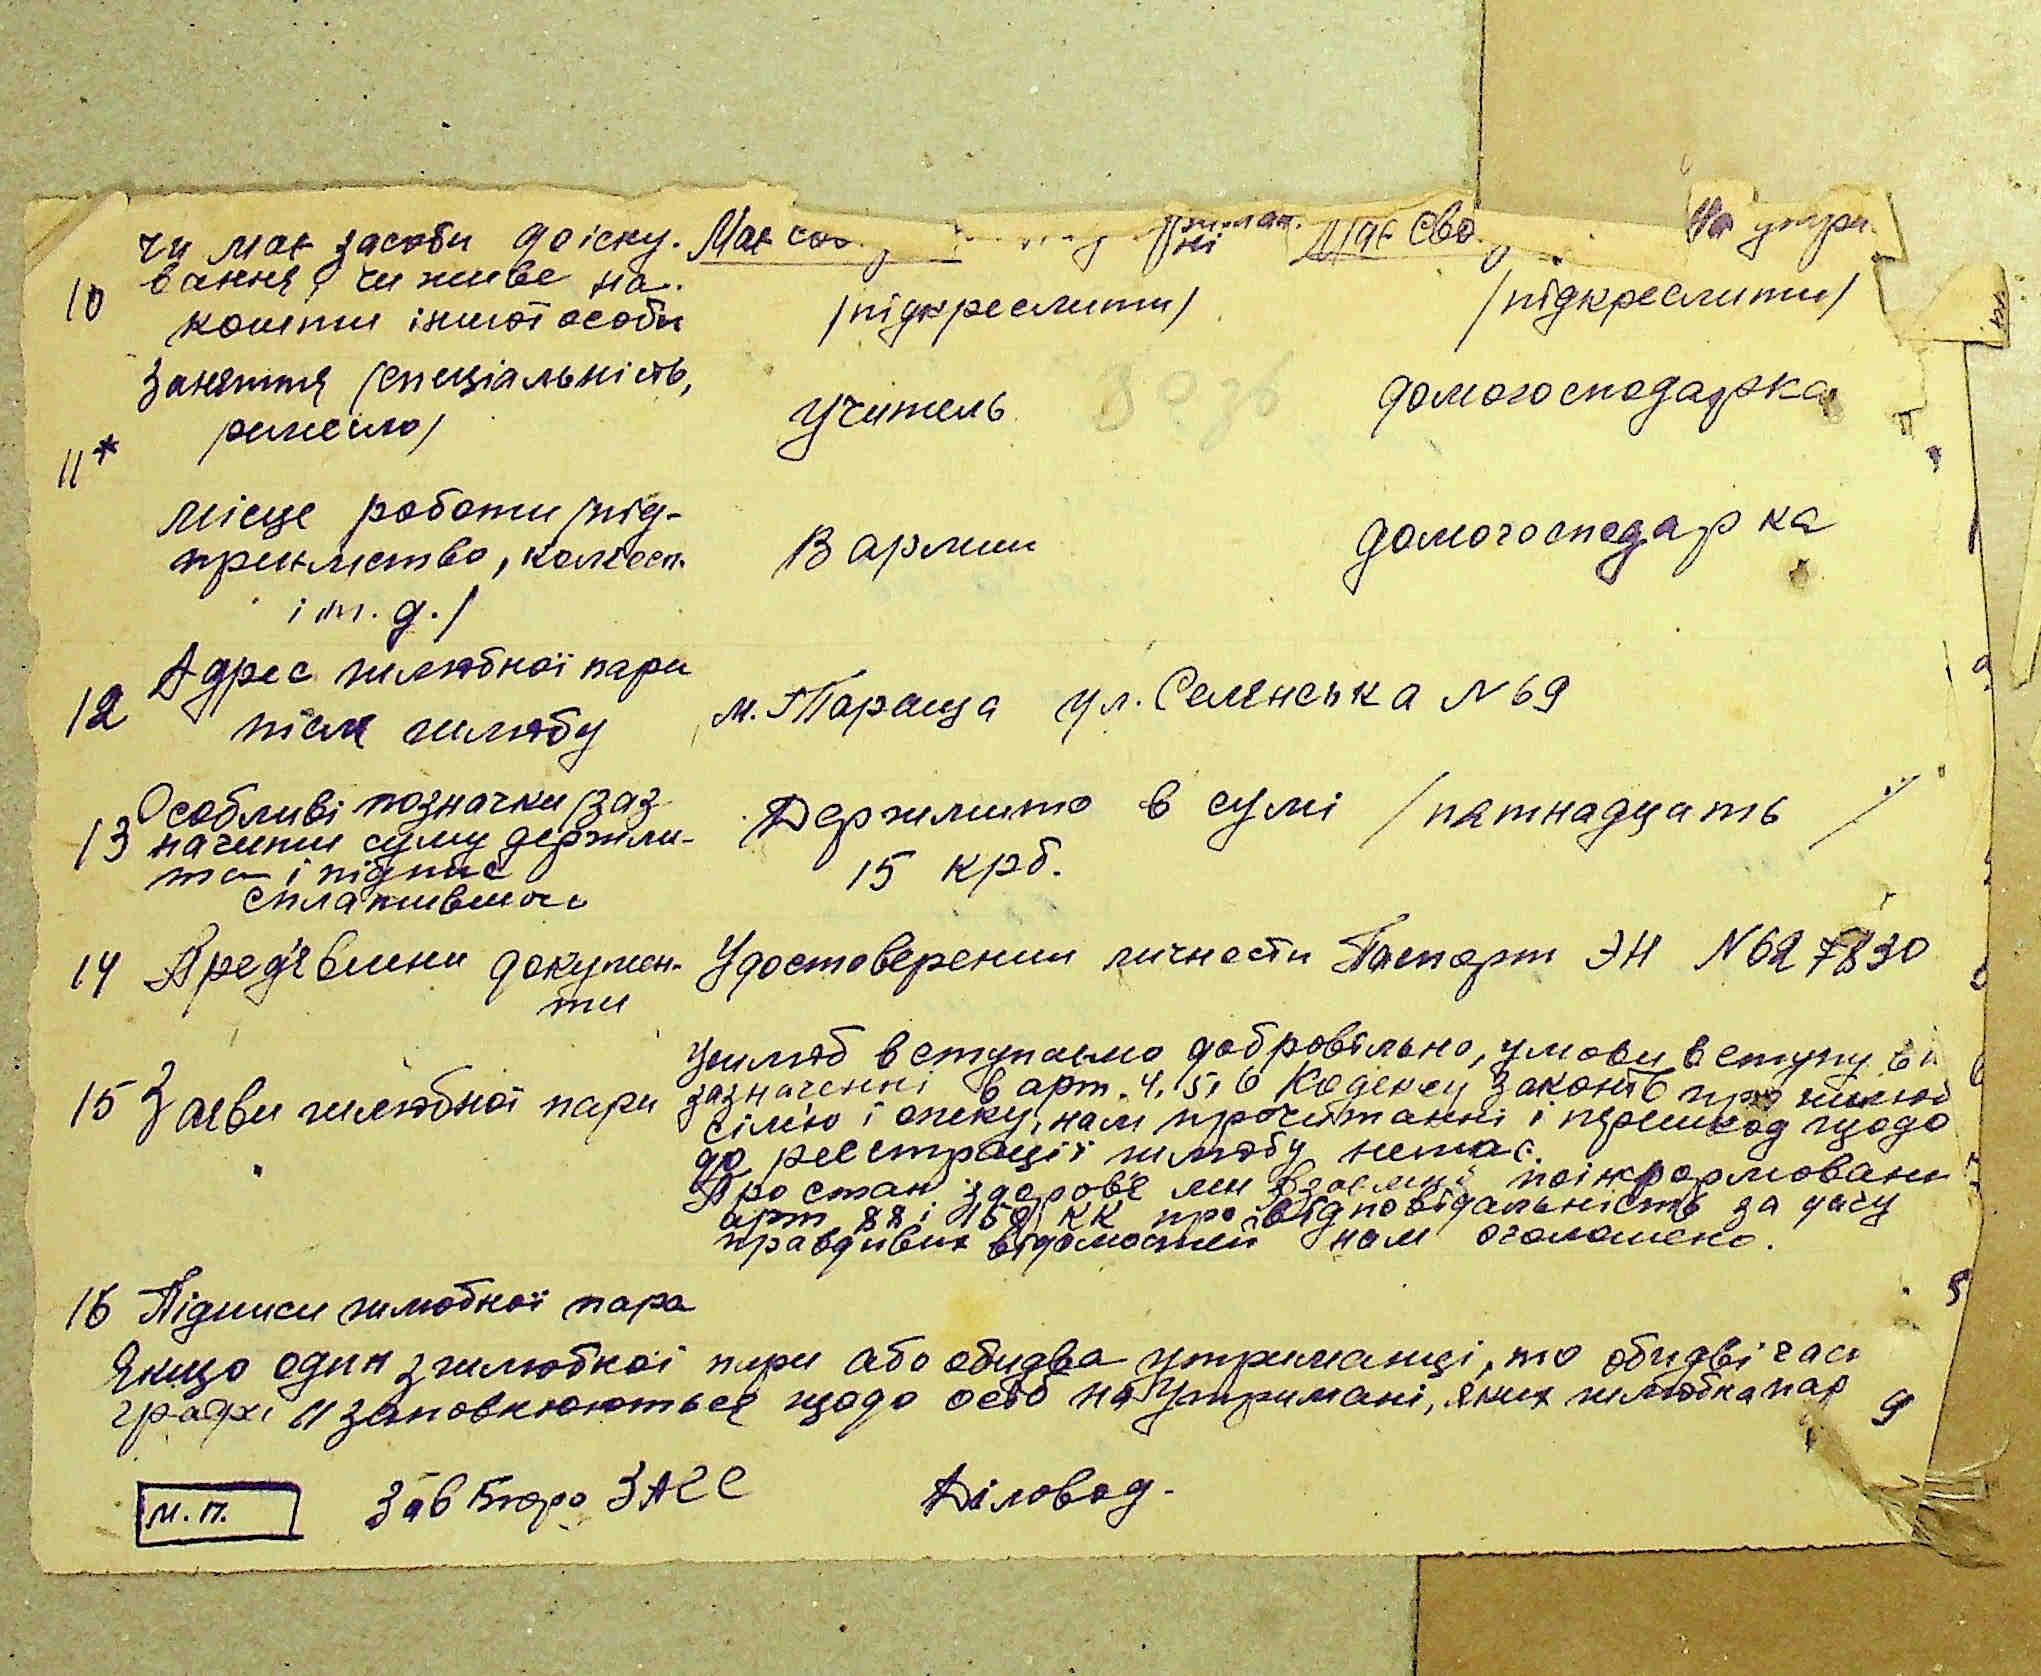 чи має засоби до існу. Має сво Має Сво. На утри
10 вання, чи живе на. /підкреслити/ /підкреслити/
кошти іншої особи
Заняття /спеціальність, учитель домогосподарка
11* ремесло/
місце роботи /під- В армии домогосподарка
приємство, колгосп.
і т. д./
12 Адрес шлюбної пари м. Тараща ул. Селянська N 69
після шлюбу
13 Особливі позначки /заз Держмито в сумі /пятнадцать /
начити суму держми- 15 крб.
та і підпис
сплатившого
14 Пред'явлини докумен- Удостоверении личности Паспорт ЭН N 627830
ти
15 Заяви шлюбної пари У шлюб вступаємо добровільно, умови вступу в
зазначенні в арт. 4, 5, 6 Кодексу Законів про шлюб
сім'ю і опеку, нам прочитанні і перешкод щодо
до реєстрації шлюбу немає.
Про стан здоров'я ми взаємно поінформовани
арт. 88 і КК про відповідальність за дачу
правдивих відомостей нам оголошено.
16 Підписи шлюбної пара
Якщо один з шлюбної пари або обидва утриманці, то обидві час
графі 11 заповнюються щодо осіб на утримані, яких шлюбна пар
м.п. Зав Бюро ЗАГС Діловод.